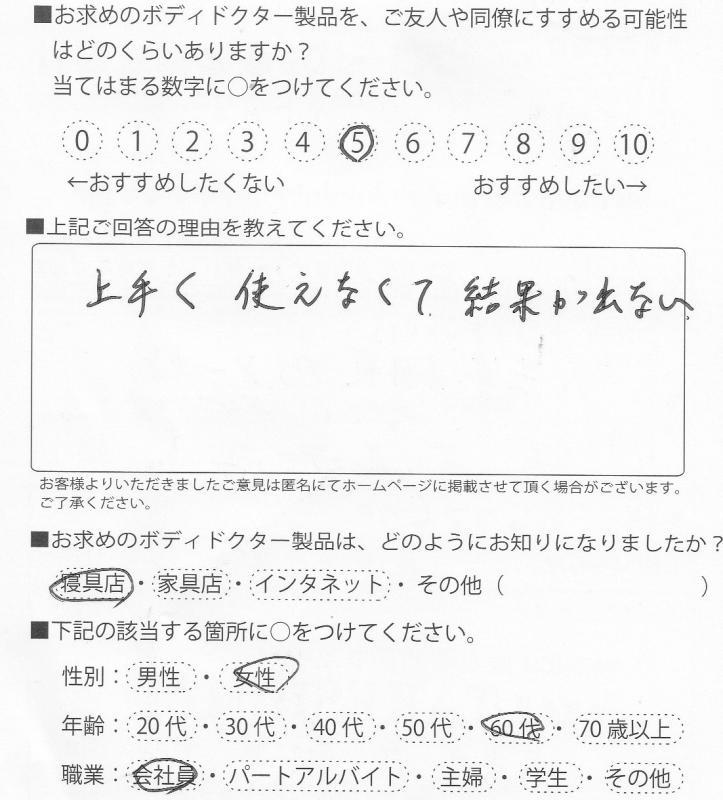 ■お求めのボディドクター製品を、ご友人や同僚にすすめる可能性
はどのくらいありますか？
当てはまる数字に○をつけてください。
0 1 2 3 4 5 6 7 8 9 10
←おすすめしたくない おすすめしたい→
■上記ご回答の理由を教えてください。
上手く 使えなくて 結果が出ない
お客様よりいただきましたご意見は匿名にてホームページに掲載させて頂く場合がございます。
ご了承ください。
■お求めのボディドクター製品は、どのようにお知りになりましたか？
寝具店・家具店・インタネット・その他（ ）
■下記の該当する箇所に○をつけてください。
性別：男性・女性
年齢：20代・30代・40代・50代・60代・70歳以上
職業：会社員・パートアルバイト・主婦・学生・その他